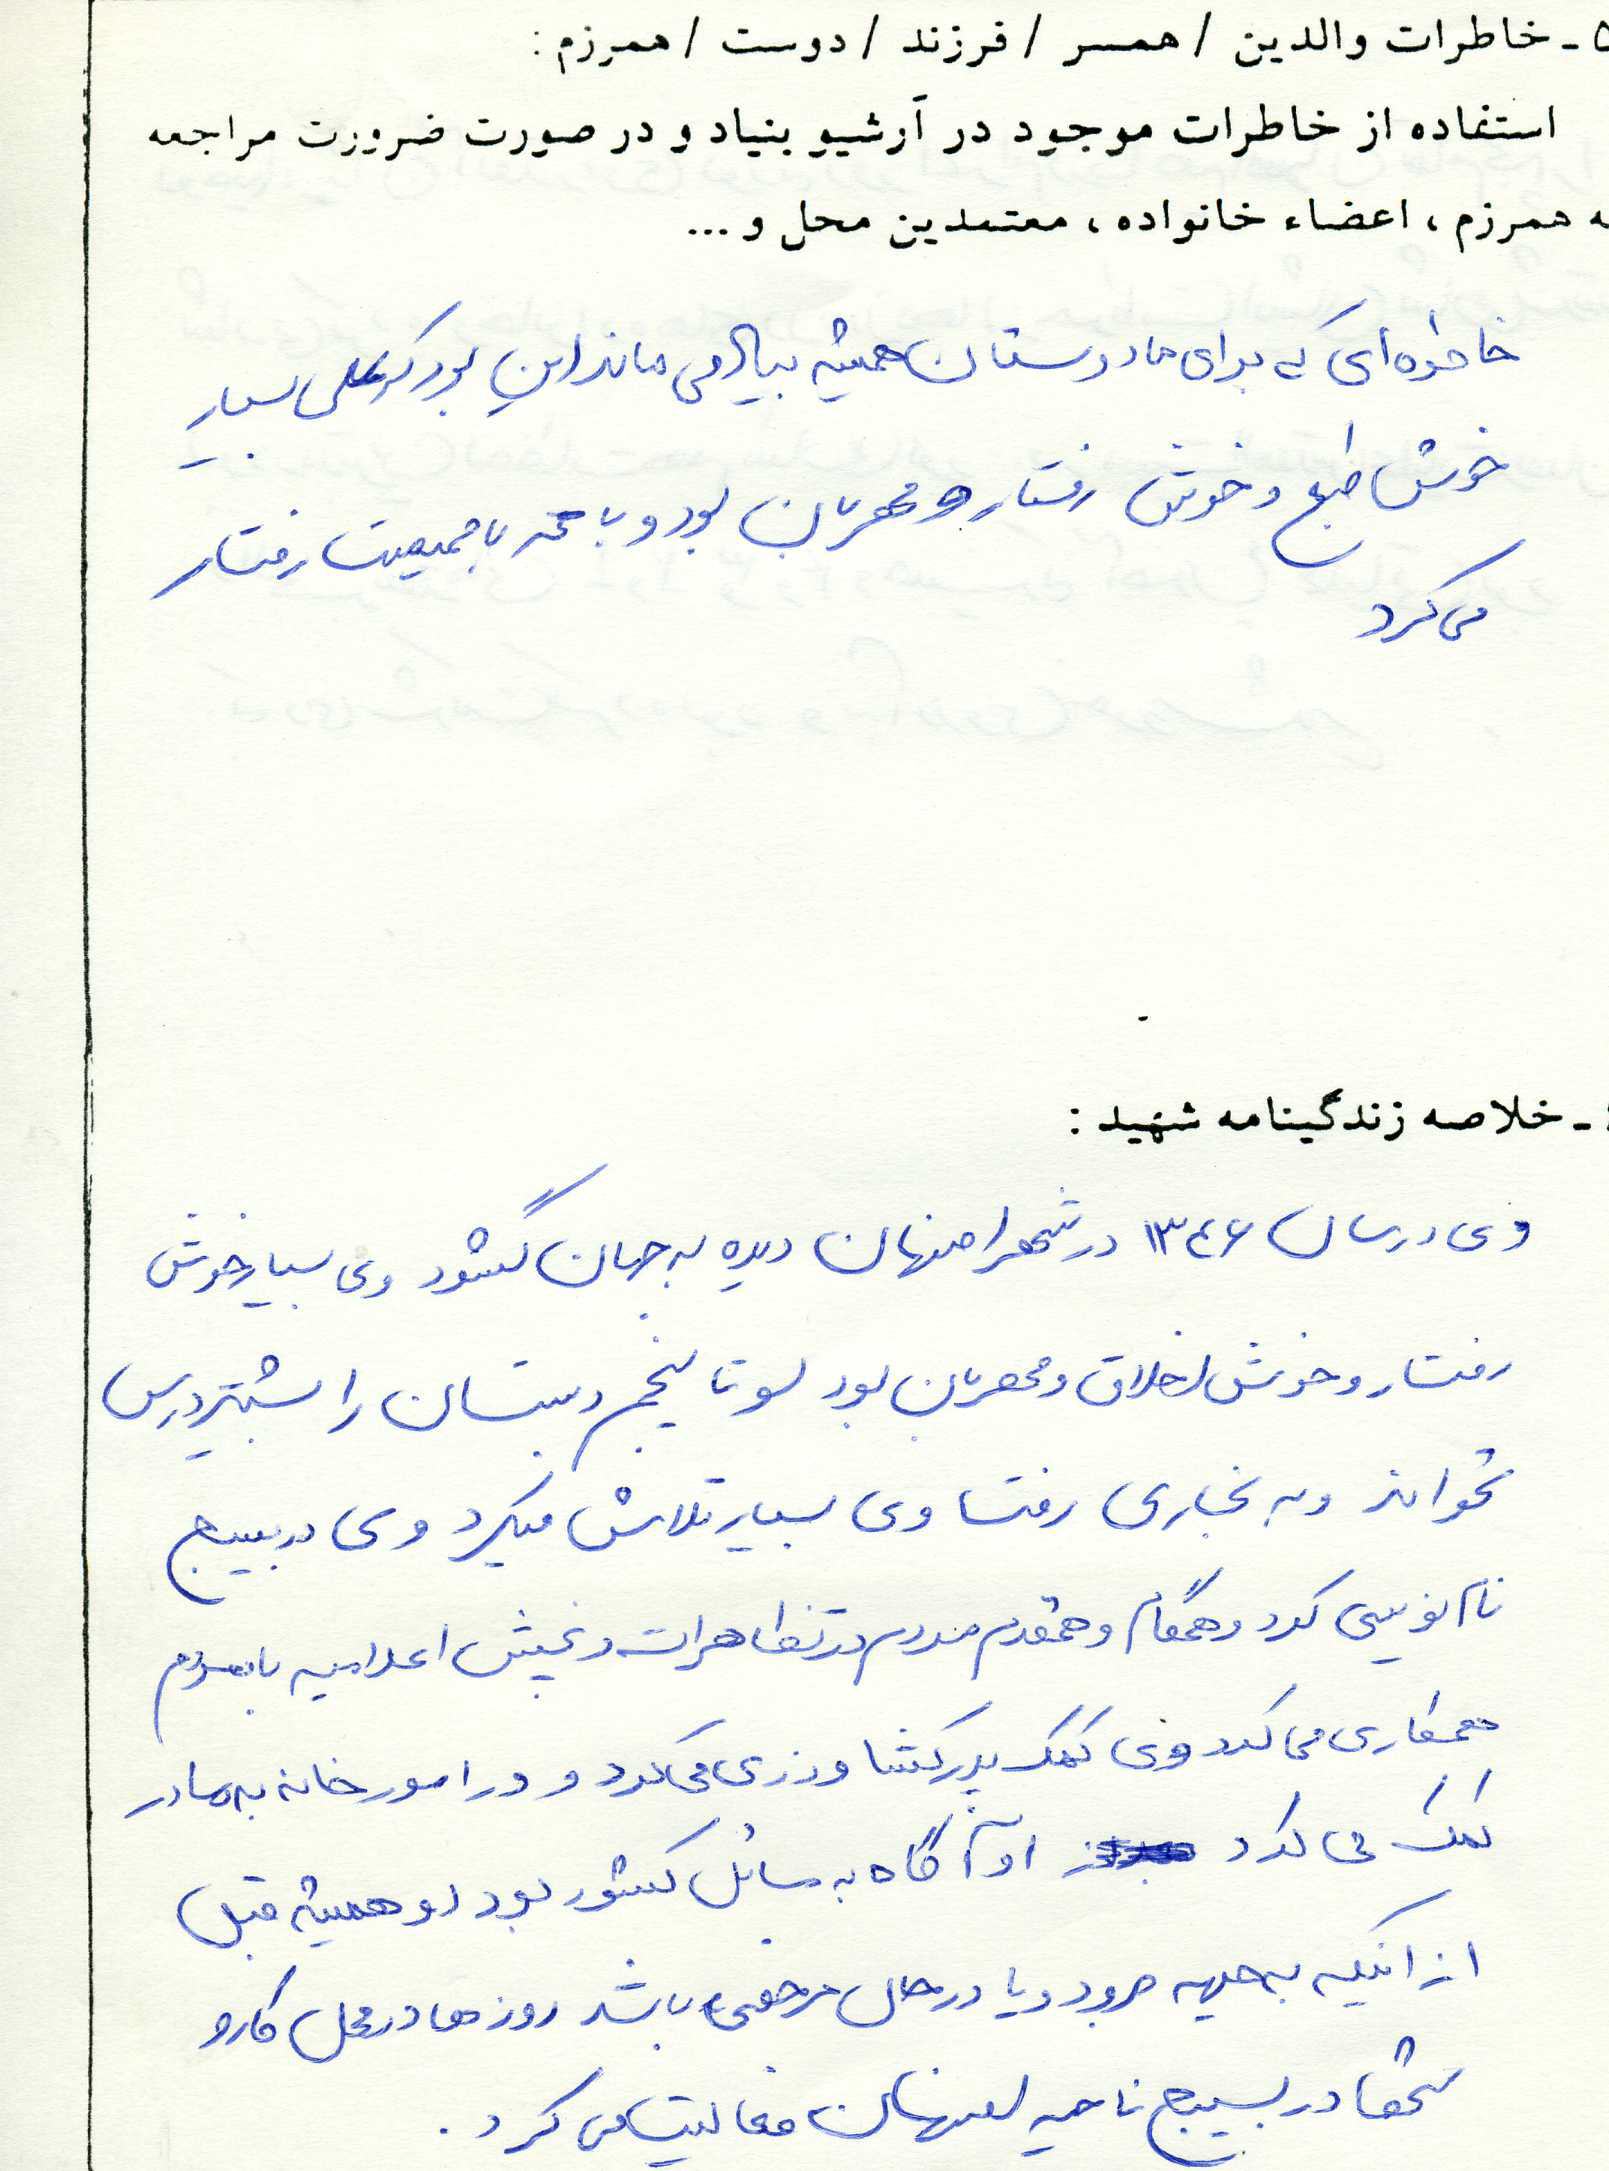 ۵ - خاطرات والدین / همسر / فرزند / دوست / همرزم :
استفاده از خاطرات موجود در آرشیو بنیاد و در صورت ضرورت مراجعه
ه همرزم ، اعضاء خانواده ، معتمدین محل و ...
خاطره‌ای که برای ما دوستان همیشه بیاد می ماند این بود که علی بسیار
خوش طبع و خوش رفتار و مهربان بود و با همه با صمیمیت رفتار
می کرد
- خلاصه زندگینامه شهید :
وی در سال ۱۳۴۶ در شهر اصفهان دیده به جهان گشود وی بسیار خوش
رفتار و خوش اخلاق و مهربان بود او تا پنجم دبستان را بیشتر درس
نخواند و به نجاری رفت وی بسیار تلاش میکرد وی در بسیج
نام نویسی کرد و همگام و همقدم مردم در تظاهرات و پخش اعلامیه با مردم
همکاری می کرد وی کمک پدر کشاورزی می کرد و در امور خانه به مادر
کمک می کرد او آگاه به مسائل کشور بود او همیشه قبل
از اینکه به جبهه برود و یا در حال مرخصی باشد روزها در محل کار و
شبها در بسیج ناحیه اصفهان فعالیت می کرد .